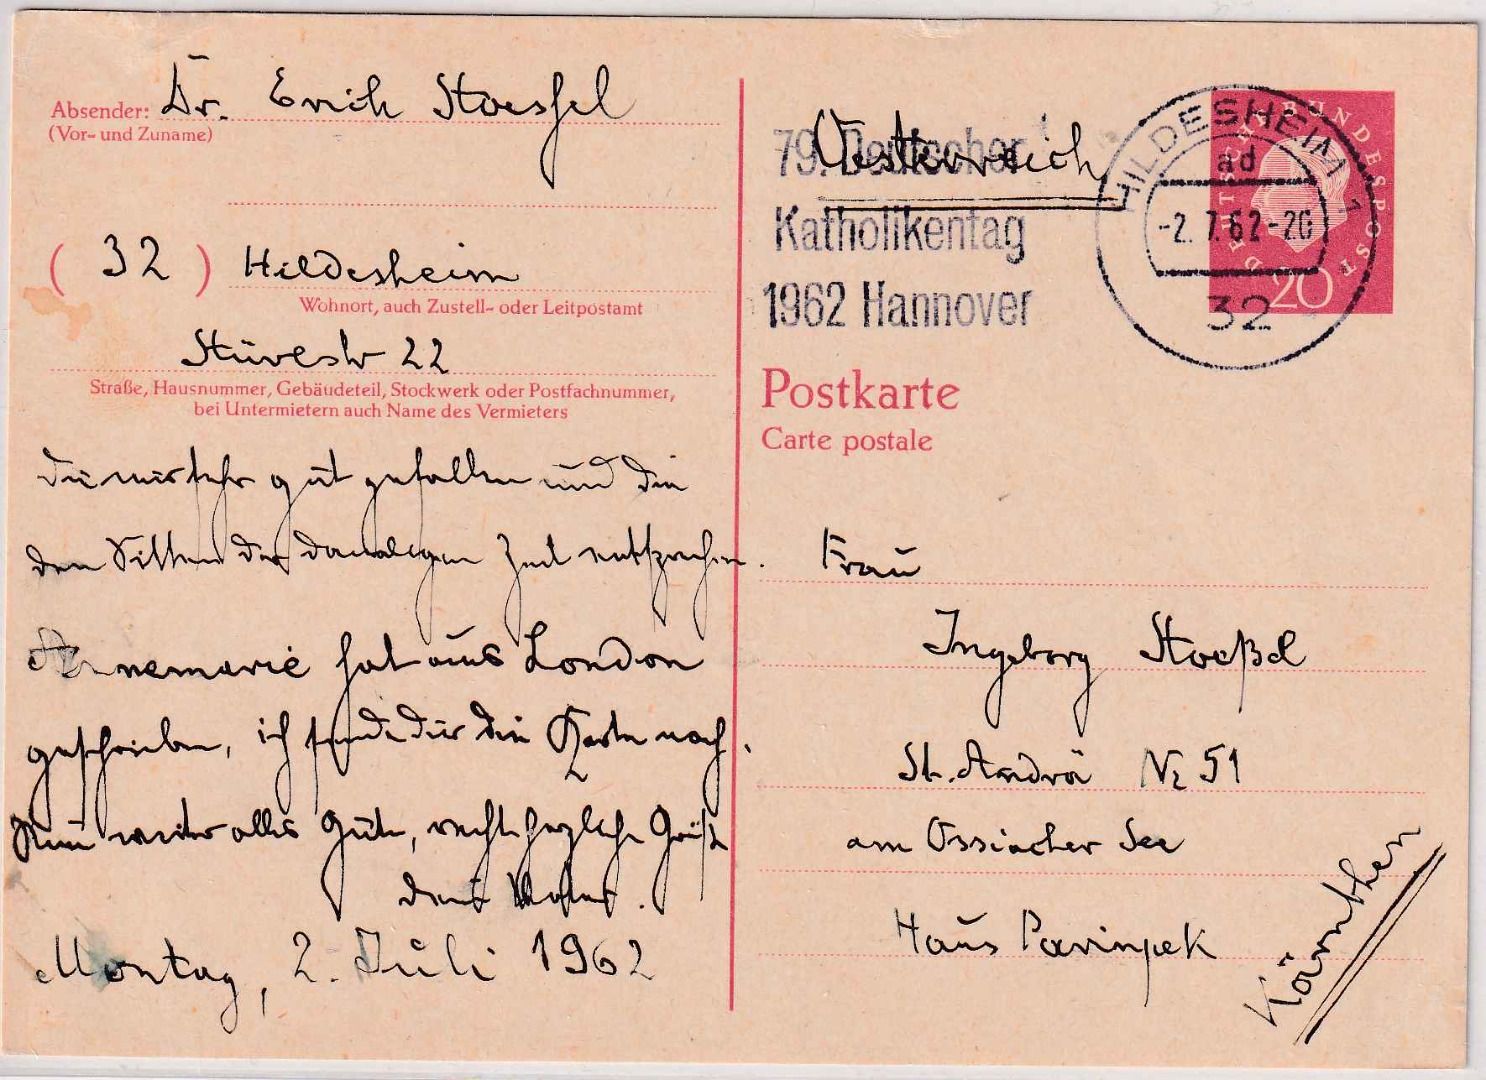 Absender: Dr. Erich Stoessel
(Vor- und Zuname)
(32) Hildesheim
Wohnort, auch Zustell- oder Leitpostamt
Stüvestr 22
Straße, Hausnummer, Gebäudeteil, Stockwerk oder Postfachnummer,
bei Untermietern auch Name des Vermieters
die mir sehr gut gefallen und die
den Sitten der damaligen Zeit entsprechen.
Annemarie hat aus London
geschrieben, ich sende dir die Karte nach.
Nun weiter alles Gute, recht herzliche Grüße
dein Vater.
Montag, 2. Juli 1962
Oesterreich
79. Deutscher
Katholikentag
1962 Hannover
HILDESHEIM 1
ad
-2.7.62-20
32
DEUTSCHE BUNDESPOST
20
Postkarte
Carte postale
Frau
Ingeborg Stoeßel
St. Andrä Nr 51
am Ossiacher See
Haus
Kärnthen